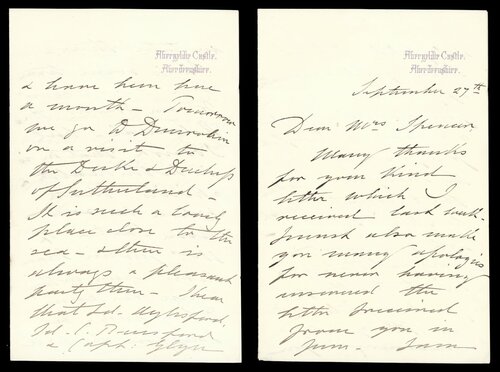 Abergeldie Castle,
Aberdeenshire.
& have been here
a month – Tomorrow
we go to Dunrobin
on a visit to
the Duke & Duchess
of Sutherland –
It is such a lovely
place close to the
sea – & there is
always a pleasant
party there – I hear
that Ld. Aylesford,
Ld. C.
& Capt: Glyn
Abergeldie Castle,
Aberdeenshire.
September 27th
Dear Mrs Spencer
Many thanks
for your kind
letter which I
received last week.
I must also make
you many apologies
for never having
answered the
letter I received
from you in
June. I am